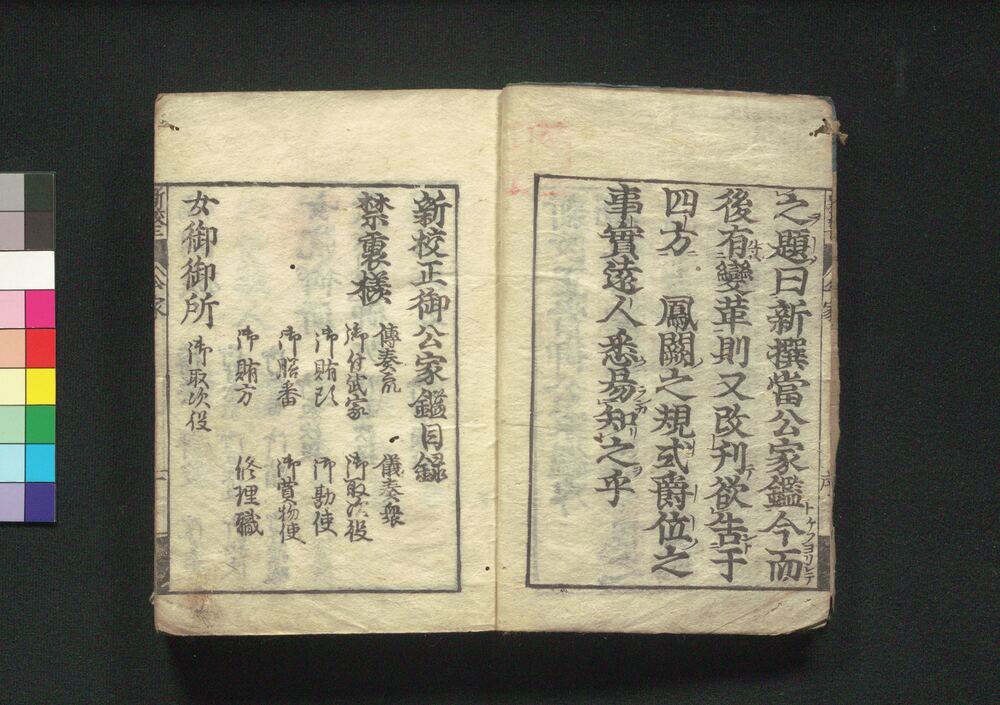 之題曰新撰當公家鑑今而
後有變革則又改刋欲告于
四方 鳳闕之規式爵位之
事實遠人悉易知之乎
新校正御公家鑑目録
禁裏様
傳奏衆 儀奏衆
御付武家 御取次役
御賄頭 御勘使
御膳番 御買物使
御賄方 修理職
女御御所 御取次役